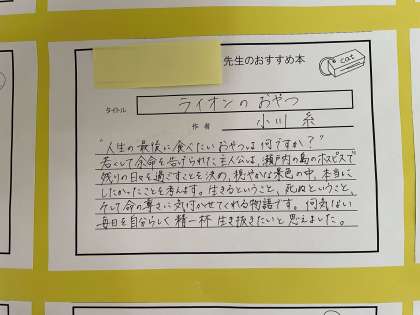 先生のおすすめ本
cat
タイトル ライオンのおやつ
作者 小川 糸
"人生の最後に食べたいおやつは何ですか？"
若くして余命を告げられた主人公は、瀬戸内の島のホスピスで
残りの日々を過ごすことを決め、穏やかな景色の中、本当に
したかったことを考えます。生きるということ、死ぬということ、
そして命の尊さに気付かせてくれる物語です。何気ない
毎日を自分らしく精一杯生き抜きたいと思えました。